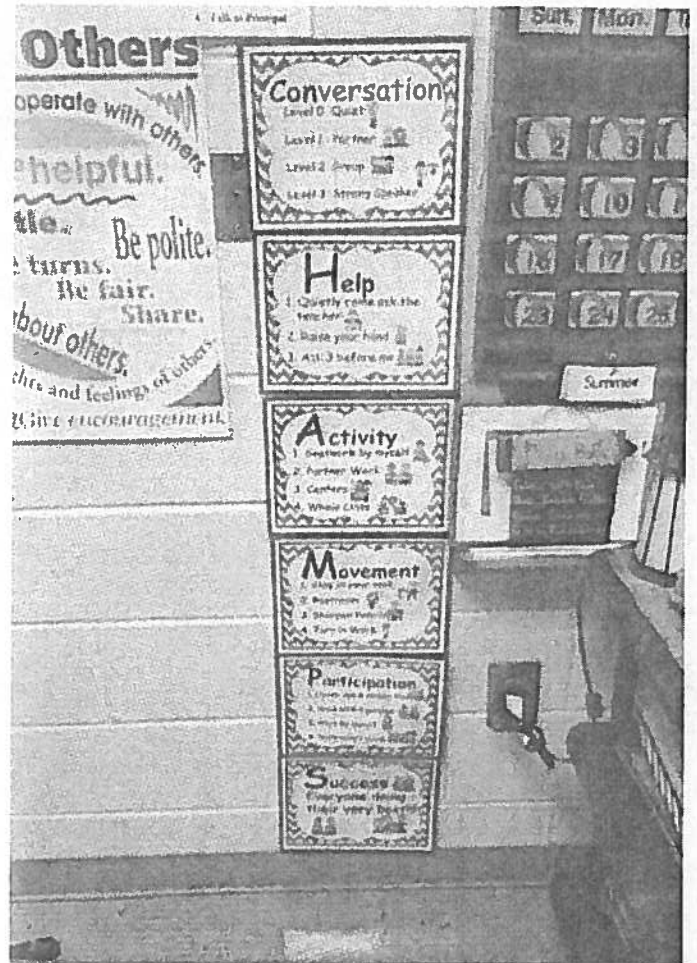 4. Talk to Principal
Others
operate with others.
helpful.
Be polite.
turns.
Be fair.
Share.
about others.
and feelings of others.
Give encouragement
Conversation
Level 0: Quiet
Level 1: Partner
Level 2: Group
Level 3: Strong Speaker
Help
1. Quietly come ask the
teacher
2. Raise your hand
3. Ask 3 before me
Activity
1. Seatwork by myself
2. Partner Work
3. Centers
4. Whole Class
Movement
1. Stay in your seat
2. Restroom
3. Sharpen
4. Turn in Work
Participation
Success
Everyone doing
their very best
Sun. Mon.
2 3
9 10
16 17 18
23 24 25
Summer